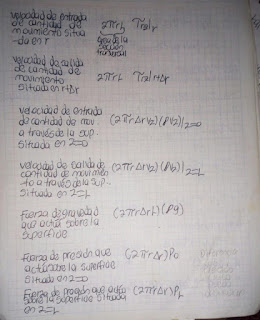 velocidad de entrada
de cantidad de
movimiento situa
-da en r
2πrL τrz|r
área de la
sección
transversal
velocidad de salida
de cantidad de
movimiento
situada en r+Δr
2πrL τrz|r+Δr
velocidad de entrada
de cantidad de mov
a través de la sup.
situada en z=0
(2πrΔrVz)(ρVz)|z=0
velocidad de salida de
cantidad de movimien
to a través de la sup..
situada en z=L
(2πrΔrVz)(ρVz)|z=L
Fuerza de gravedad
que actúa sobre la
superficie
(2πrΔrL)(ρg)
Fuerza de presión que
actúa sobre la superficie
situada en z=0
(2πrΔr)P0
Fuerza de presión que actúa
sobre la superficie situada
en z=L
(2πrΔr)PL